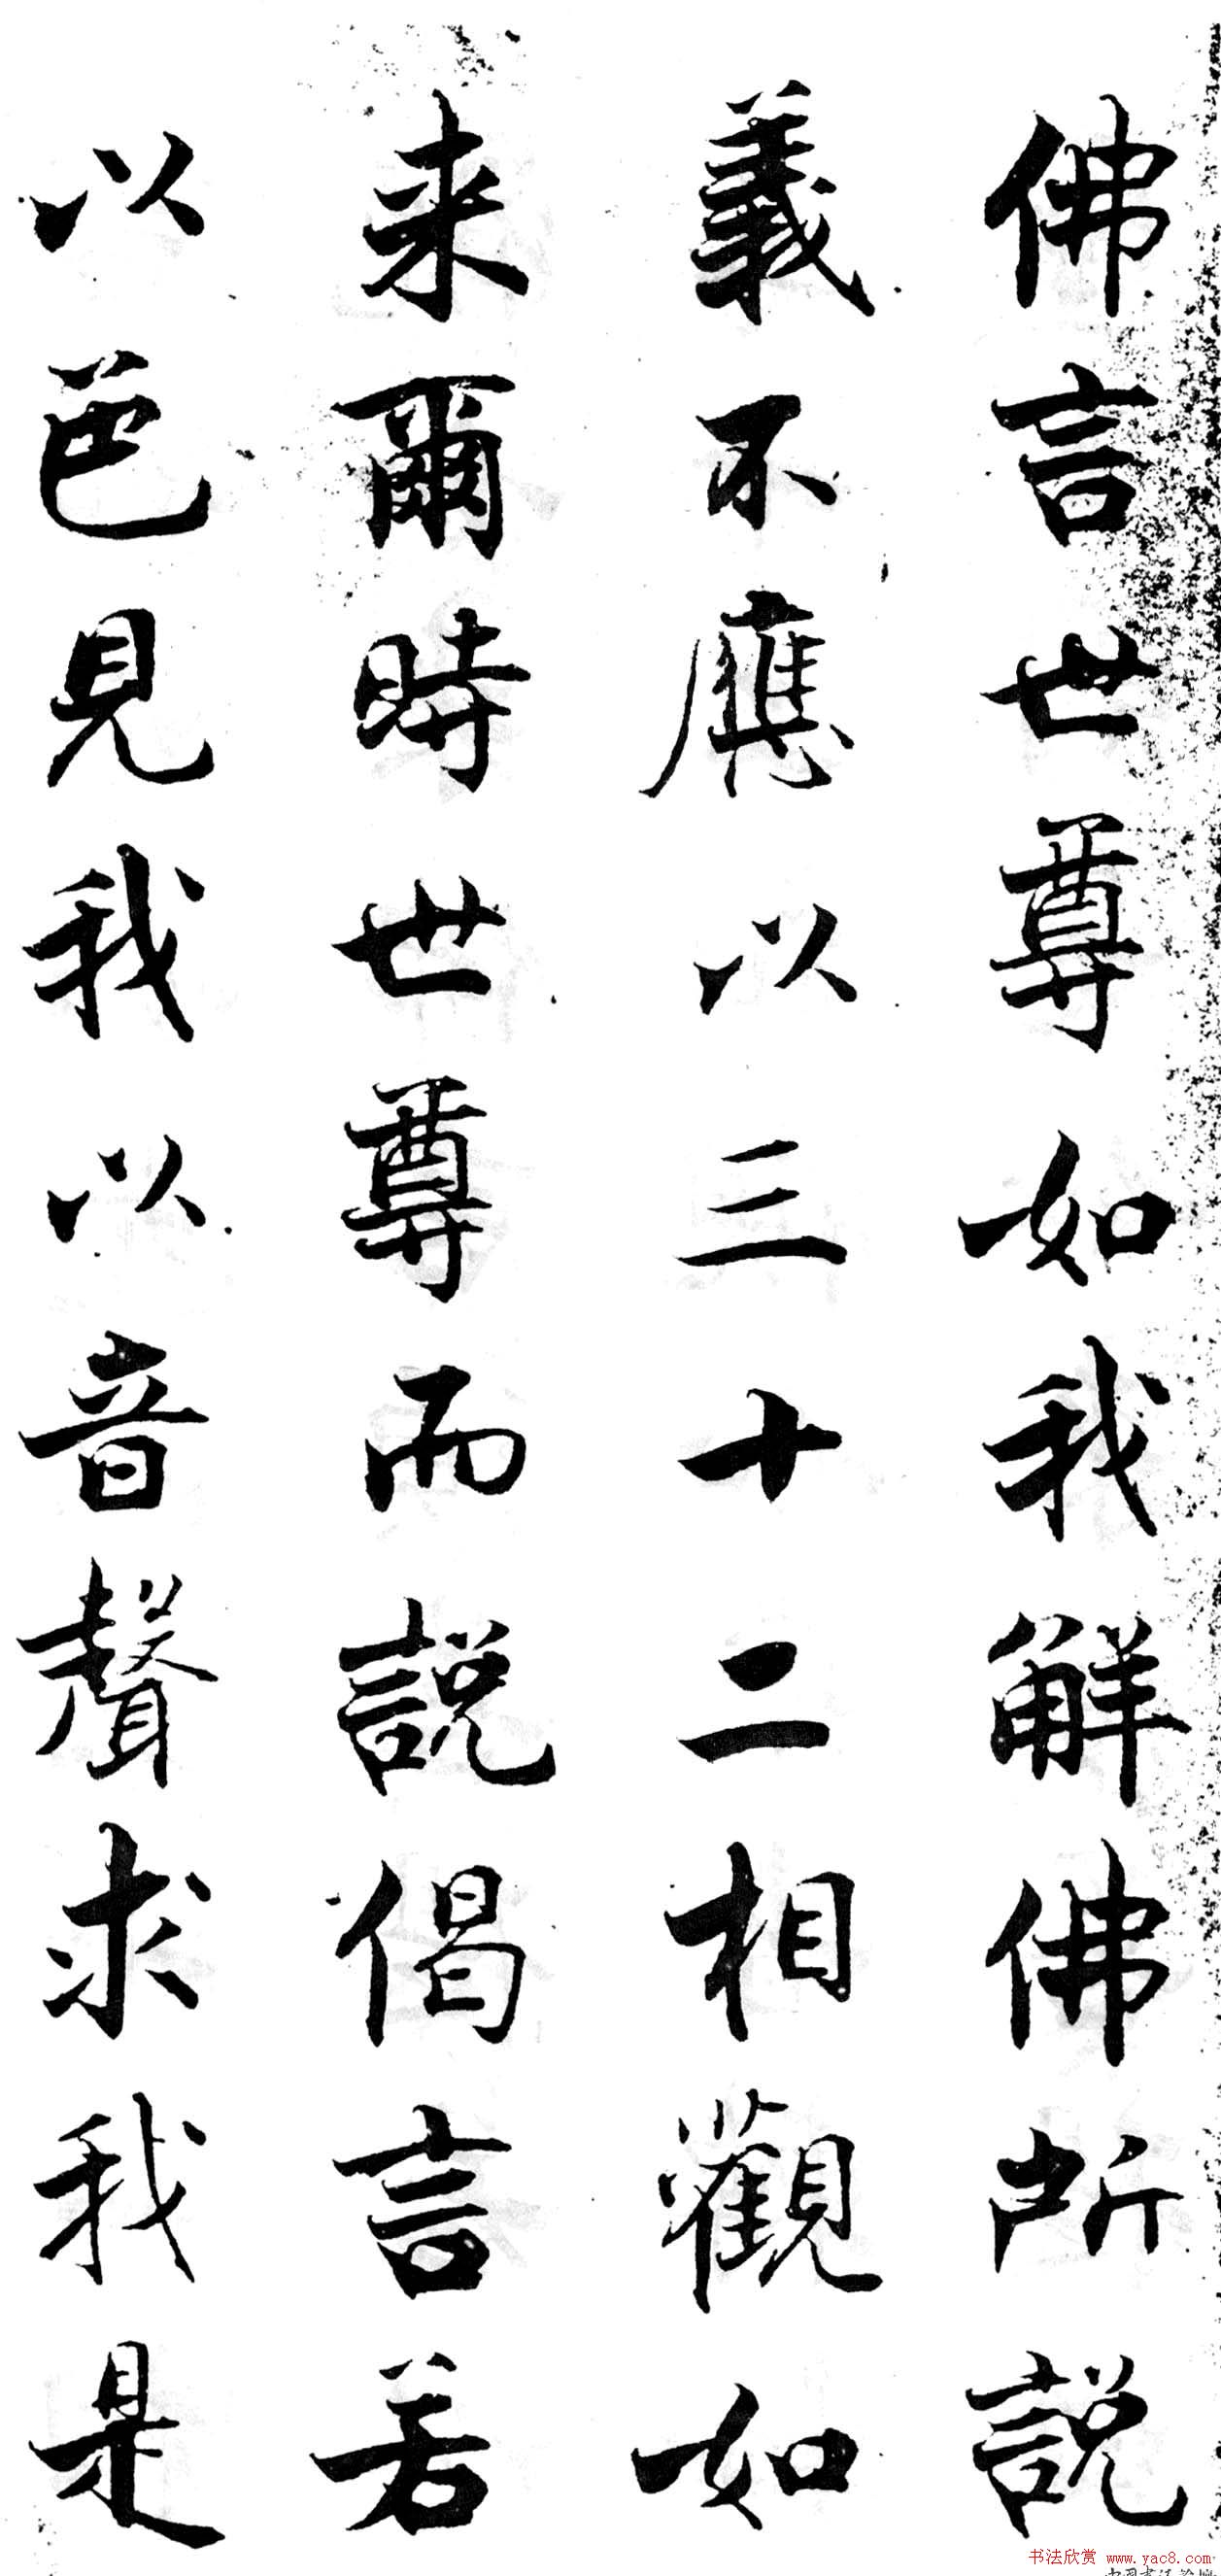 佛言世尊如我解佛所說
義不應以三十二相觀如
来爾時世尊而說偈言若
以色見我以音聲求我是
书法欣赏 www.yac8.com